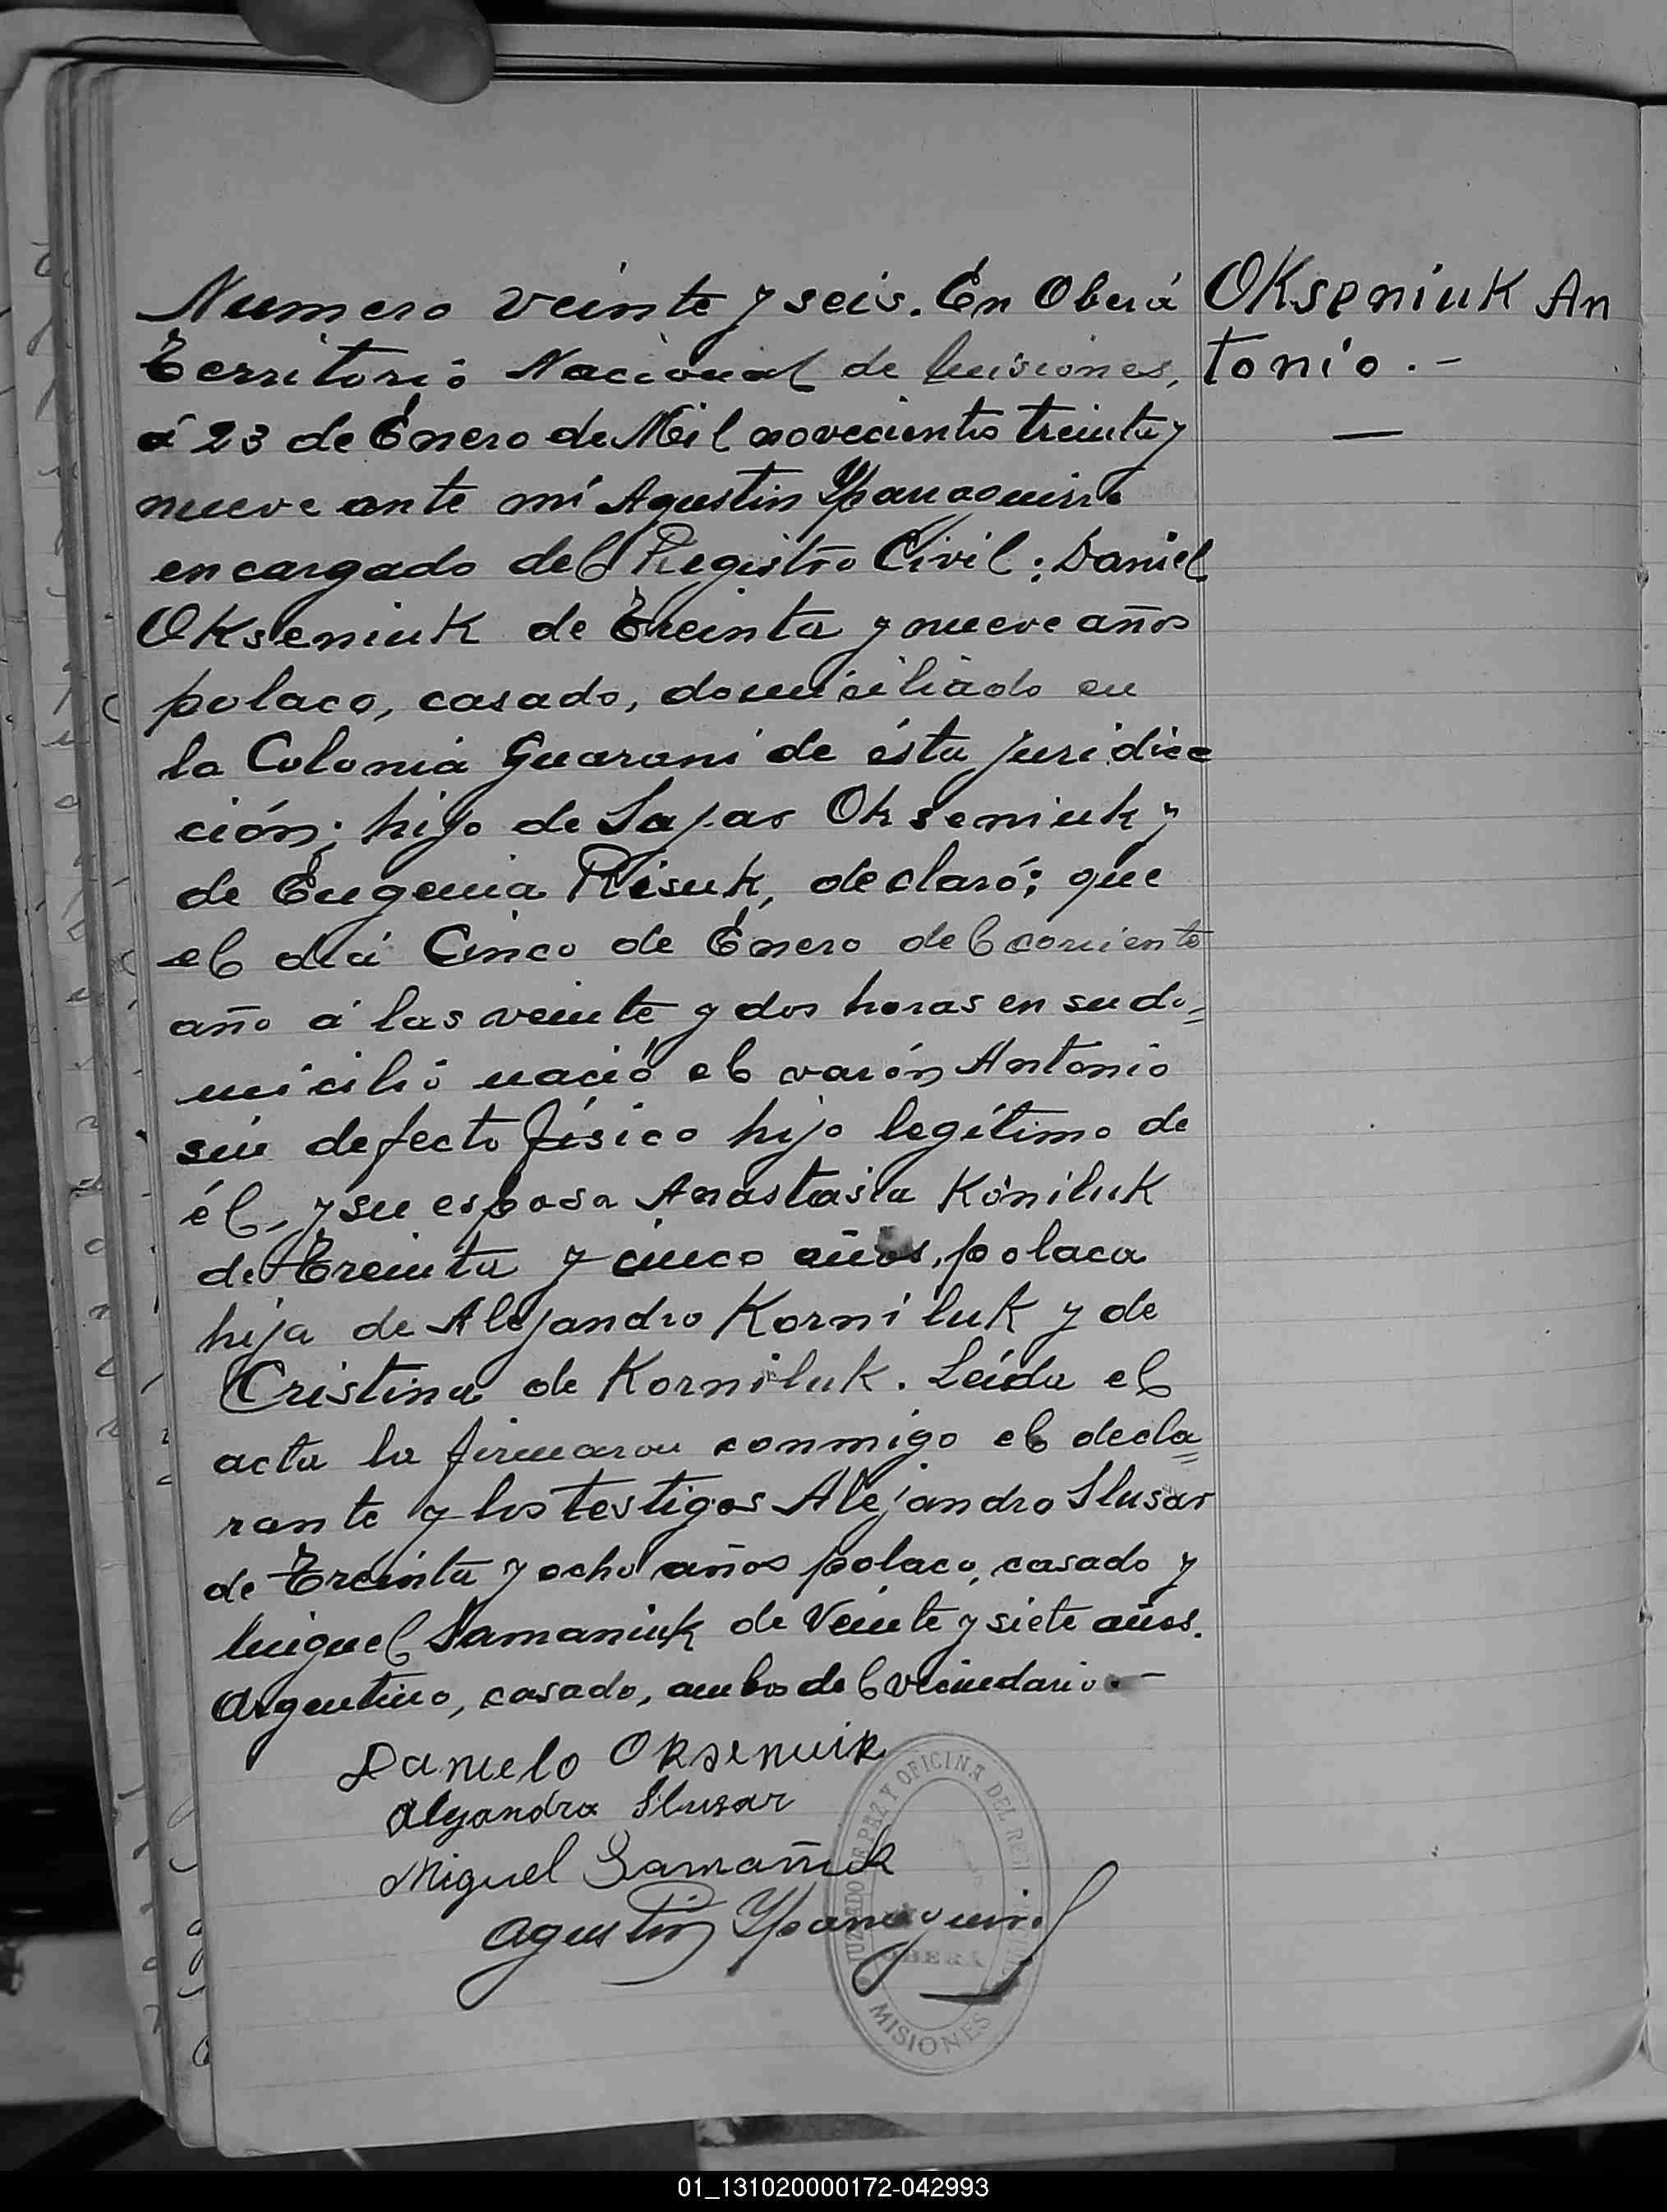 Numero veinte y seis. En Oberá
Territorio Nacional de Misiones,
á 23 de Enero de Mil novecientos treinta y
nueve ante mí Agustin Yparraguirre
encargado del Registro Civil: Daniel
Okseniuk de Treinta y nueve años
polaco, casado, domiciliado en
la Colonia Guarani de ésta juridicc
ción; hijo de Lajar Okseniuk y
de Eugenia Risuk, declaró: que
el día Cinco de Enero del corriente
año á las veinte y dos horas en su do=
micilio nació el varón Antonio
sin defecto físico hijo legítimo de
él, y su esposa Anastasia Koniluk
de Treinta y cinco años, polaca
hija de Alejandro Korniluk y de
Cristina de Korniluk. Leída el
acta la firmaron conmigo el decla=
rante y los testigos Alejandro Slusar
de Treinta y ocho años polaco, casado y
Miguel Samaniuk de Veinte y siete años.
Argentino, casado, ambos del vecindario.—
Okseniuk An
tonio.-
—
Danielo Oksenuik
Alejandro Slusar
Miguel Samañuk
Agustin Yparraguirre
JUZGADO DE PAZ Y OFICINA DEL
OBERÁ
MISIONES
01_131020000172-042993